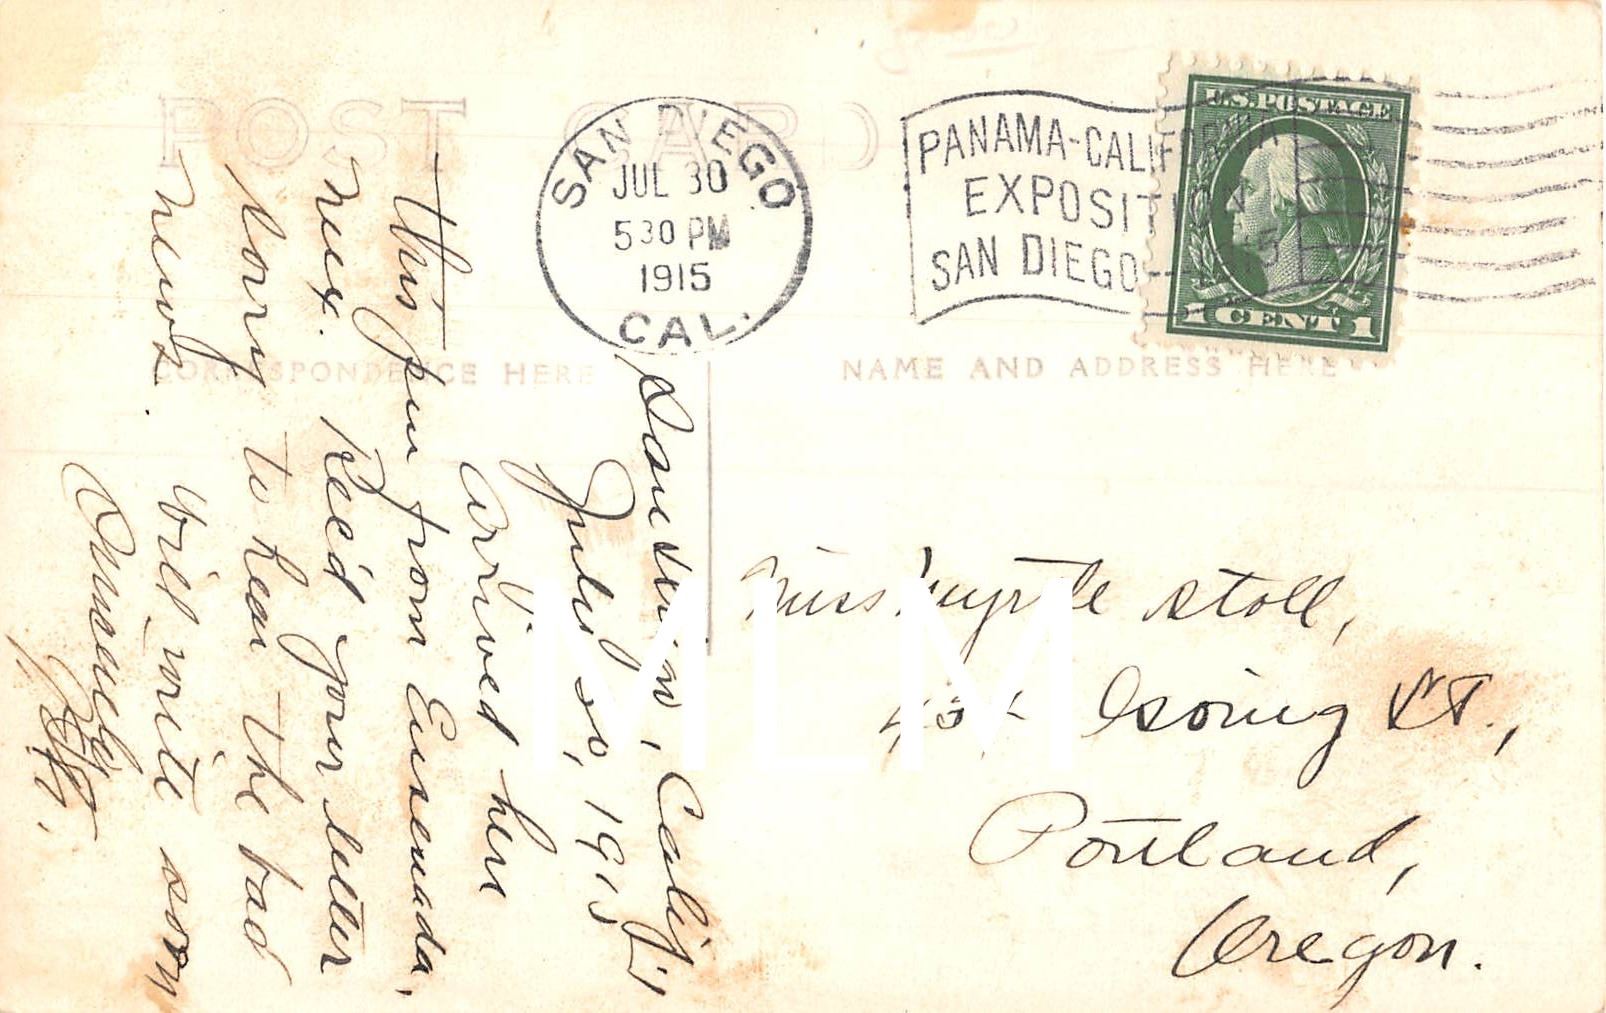 POST CARD
SAN DIEGO
JUL 30
530 PM
1915
CAL.
PANAMA-CALIFORNIA
EXPOSITION
SAN DIEGO---1915
U.S. POSTAGE
1 CENT 1
CORRESPONDENCE HERE
NAME AND ADDRESS HERE
San Luis, Calif.
July 30, 1915
Arrived here
this pm from Ensenada,
Mex. Rec'd your letter
Sorry to hear the bad
news. Will write soon
Sincerely
Miss Myrtle Stoll,
St.,
Portland,
Oregon.
MLM